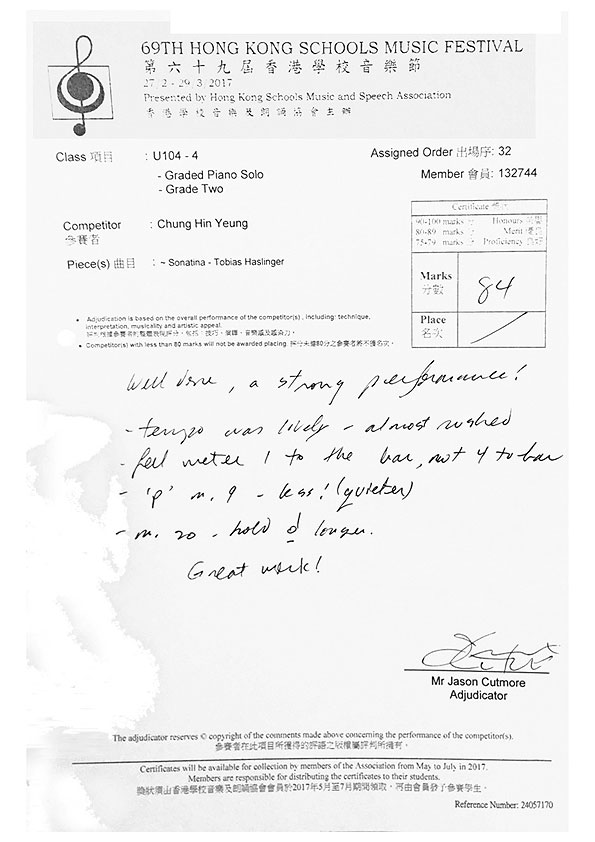 69TH HONG KONG SCHOOLS MUSIC FESTIVAL
第六十九屆香港學校音樂節
27.2 - 29.3.2017
Presented by Hong Kong Schools Music and Speech Association
香港學校音樂及朗誦協會主辦
Class 項目 : U104 - 4
Assigned Order 出場序: 32
- Graded Piano Solo
- Grade Two
Member 會員: 132744
Competitor : Chung Hin Yeung
參賽者
Piece(s) 曲目 : ~ Sonatina - Tobias Haslinger
Certificate
90-100 marks Honours
80-89 marks Merit
75-79 marks Proficiency
Marks 84
分數
Place /
名次
• Adjudication is based on the overall performance of the competitor(s), including: technique,
interpretation, musicality and artistic appeal.
• Competitor(s) with less than 80 marks will not be awarded placing.
Well done, a strong performance!
- tempo was lively - almost rushed
- feel meter 1 to the bar, not 4 to bar
- 'p' m. 9 - less! (quieter)
- m. 20 - hold longer.
Great work!
Mr Jason Cutmore
Adjudicator
The adjudicator reserves © copyright of the comments made above concerning the performance of the competitor(s).
參賽者在此項目所獲得的評語之版權屬評判所擁有。
Certificates will be available for collection by members of the Association from May to July in 2017.
Members are responsible for distributing the certificates to their students.
獎狀須由香港學校音樂及朗誦協會會員於2017年5月至7月期間領取，再由會員發予參賽學生。
Reference Number: 24057170